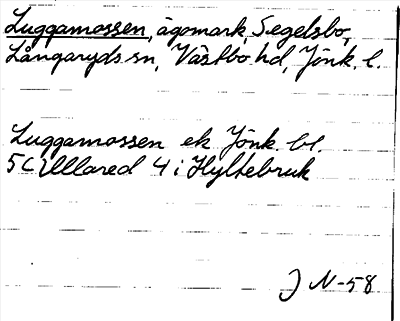 Luggamossen, ägomark, Segelsbo,
Långaryds sn, Västbo hd, Jönk. l.
Luggamossen ek Jönk. bl.
5C Ullared 4 i Hyltebruk
J N-58